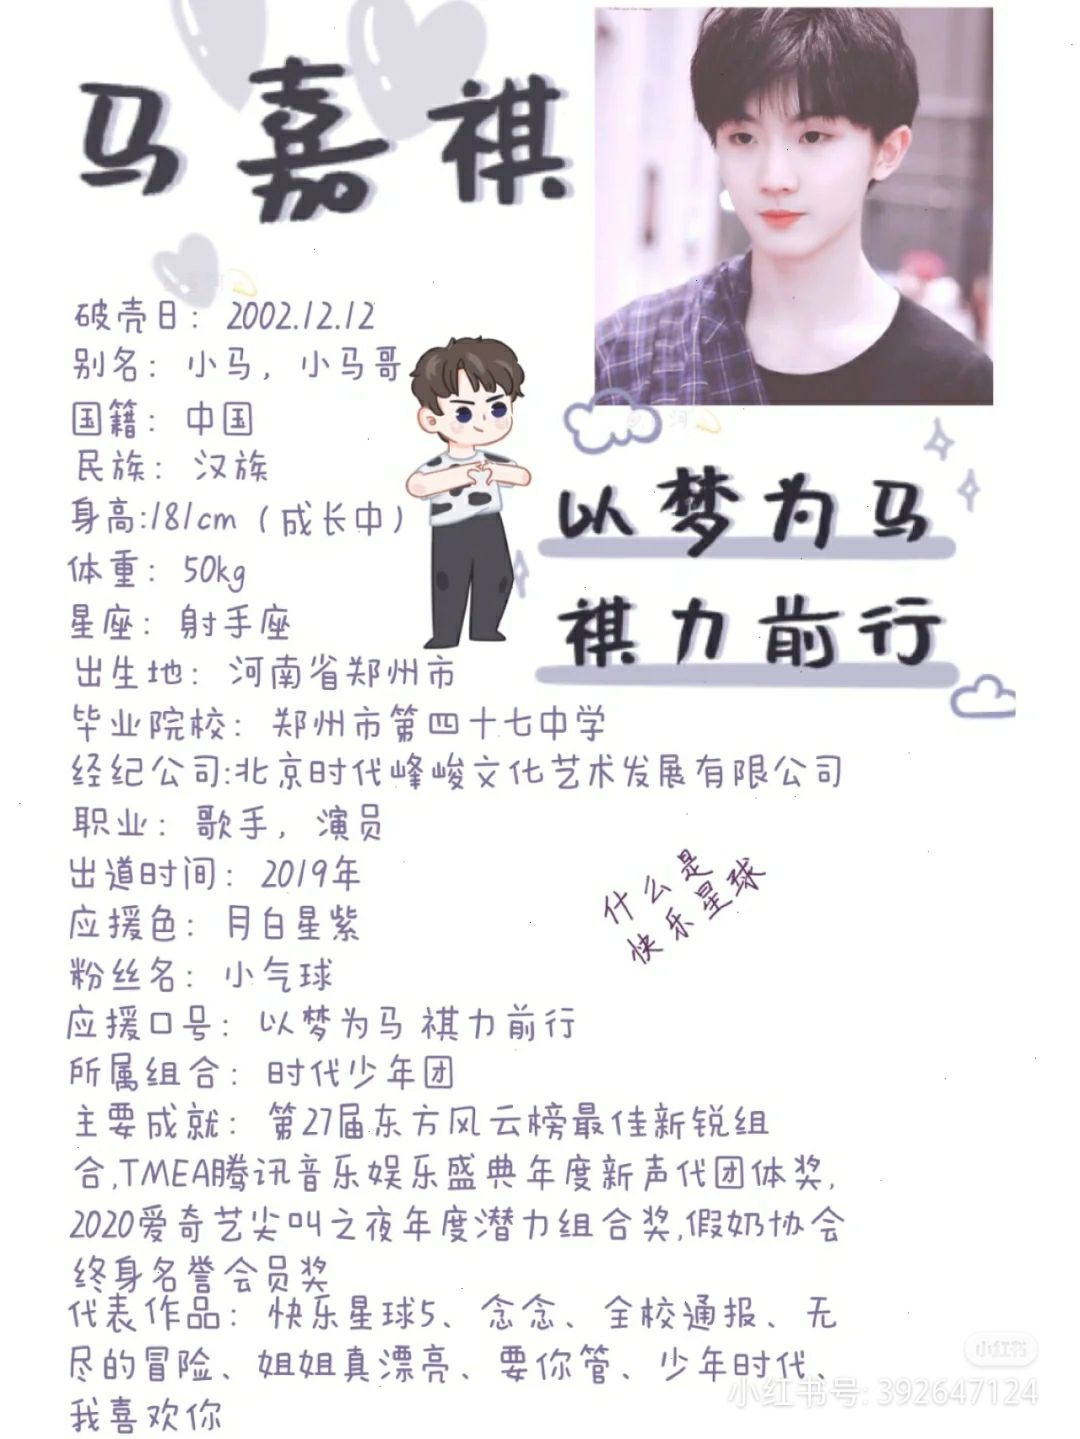 马嘉祺
破壳日：2002.12.12
别名：小马，小马哥
国籍：中国
民族：汉族
身高:181cm（成长中）
体重：50kg
星座：射手座
以梦为马
祺力前行
出生地：河南省郑州市
毕业院校：郑州市第四十七中学
经纪公司:北京时代峰峻文化艺术发展有限公司
职业：歌手，演员
出道时间：2019年
应援色：月白星紫
什么是
快乐星球
粉丝名：小气球
应援口号：以梦为马 祺力前行
所属组合：时代少年团
主要成就：第27届东方风云榜最佳新锐组
合,TMEA腾讯音乐娱乐盛典年度新声代团体奖,
2020爱奇艺尖叫之夜年度潜力组合奖,假奶协会
终身名誉会员奖
代表作品：快乐星球5、念念、全校通报、无
尽的冒险、姐姐真漂亮、要你管、少年时代、
我喜欢你
小红书
小红书号: 392647124